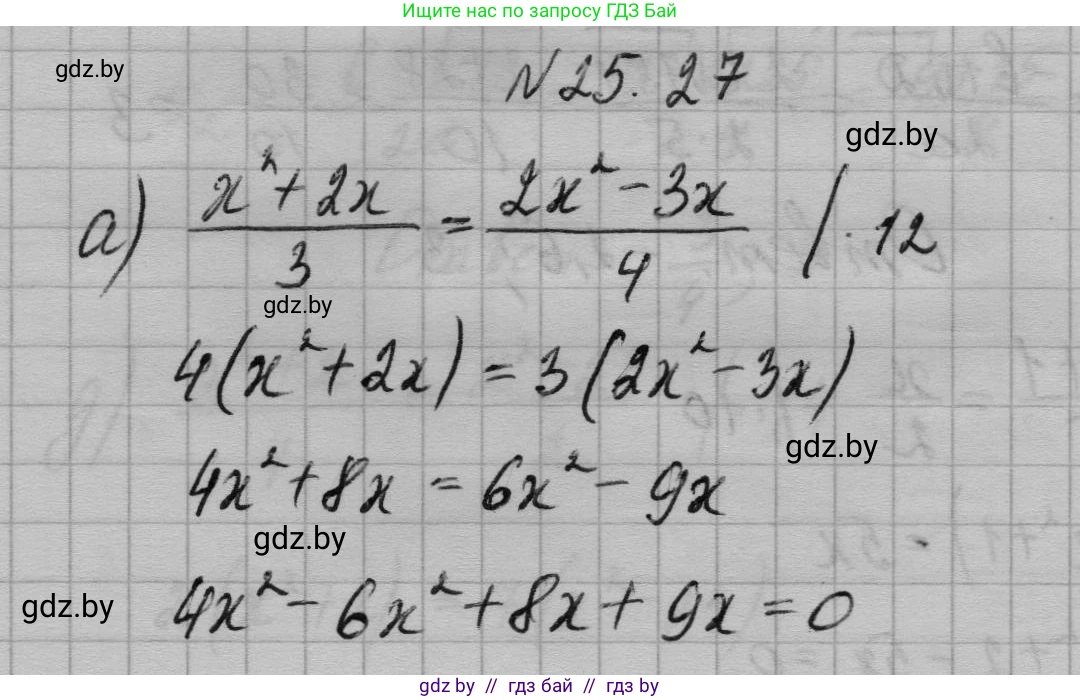 Ищите нас по запросу ГДЗ Бай
gdz.by
№25.27
gdz.by
а) (x²+2x)/3 = (2x²-3x)/4 /·12
gdz.by
4(x²+2x) = 3(2x²-3x)
gdz.by
4x²+8x = 6x²-9x
gdz.by
gdz.by
4x²-6x²+8x+9x=0
gdz.by // гдз бай // gdz.by